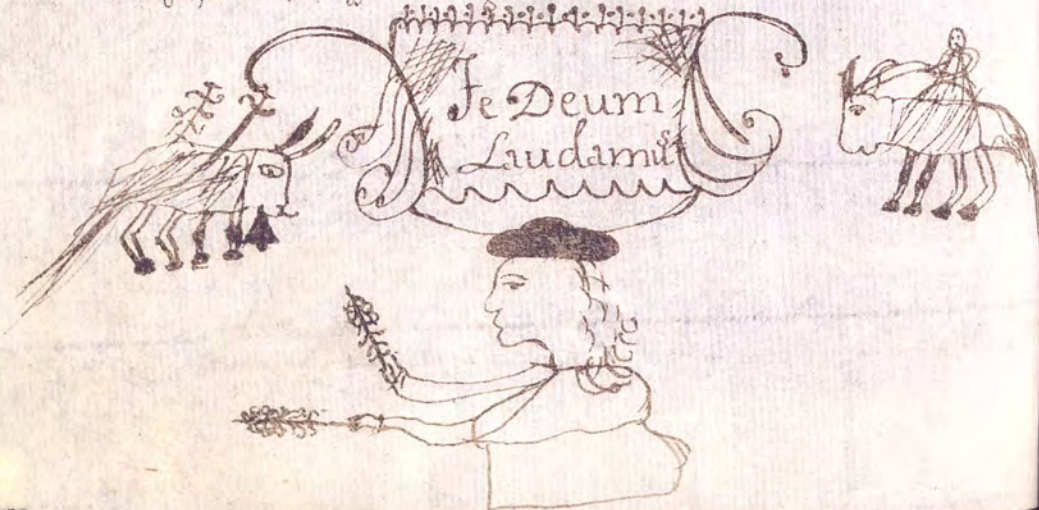 Te Deum
Laudamus